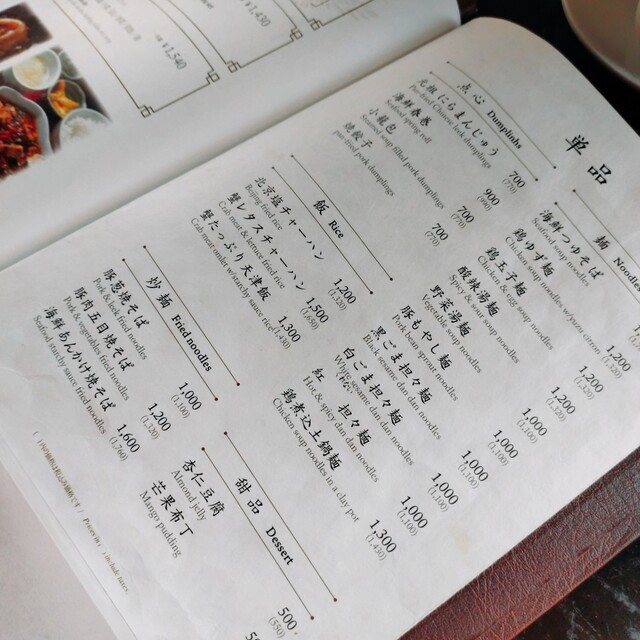 ¥1,430
¥1,540
単品
点心 Dumplings
三鮮にらまんじゅう 700 (770)
海鮮春巻 900 (990)
Seafood spring roll
小籠包 700 (770)
Steamed soup filled pork dumplings
焼餃子 700 (770)
pan-fried pork dumplings
麺 Noodles
海鮮つゆそば
Seafood soup noodles
鶏ゆず麺
鶏玉子麺
Chicken & egg soup noodles
酸辣湯麺 1,200 (1,320)
Spicy & sour soup noodles
野菜湯麺
Vegetable soup noodles
豚もやし麺 1,000 (1,100)
Pork bean sprout noodles
黒ごま担々麺 1,000 (1,100)
Black sesame dan dan noodles
白ごま担々麺 1,000 (1,100)
White sesame dan dan noodles
担々麺 1,000 (1,100)
Hot & spicy dan dan noodles
鶏煮込土鍋麺 1,300 (1,430)
Chicken soup noodles in a clay pot
飯 Rice
北京塩チャーハン 1,200 (1,320)
Beijing fried rice
蟹レタスチャーハン 1,500 (1,650)
Crab meat & lettuce fried rice
蟹たっぷり天津飯 1,300 (1,430)
炒麺 Fried noodles
豚葱焼そば 1,000 (1,100)
Pork & leek fried noodles
豚肉五目焼そば 1,200 (1,320)
Pork & vegetable fried noodles
海鮮あんかけ焼そば 1,600 (1,760)
Seafood starchy sauce fried noodles
甜品 Dessert
杏仁豆腐 500 (550)
Almond jelly
芒果布丁
Mango pudding